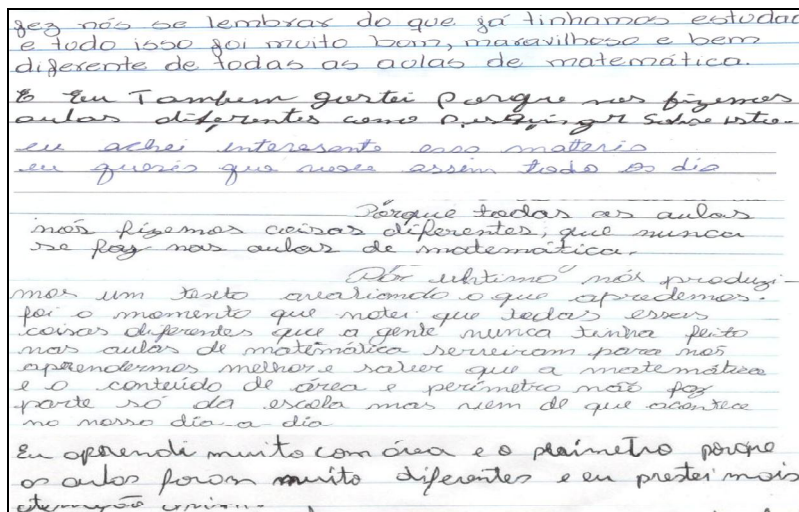 fez nós se lembrar do que já tinhamos estudad
e tudo isso foi muito bom, maravilhoso e bem
diferente de todas as aulas de matemática.
Eu Tambem gostei Porque nos fizemos
aulas diferentes como
eu achei interesante essa materia
eu queria que assim todo os dia
Pórque todas as aulas
nós fizemos coisas diferentes, que nunca
se faz nas aulas de matemática.
Pór ultimo nós produzi-
mos um texto avaliando o que apredemos.
foi o momento que notei que todas essas
coisas diferentes que a gente nunca tinha feito
nas aulas de matemática serviram para nós
aprendermos melhor e saber que a matemática
e o conteúdo de área e perímetro não faz
parte só da escola mas vem de que acontece
no nosso dia-a-dia
Eu aprendi muito com área e o porque
as aulas foram muito diferentes e eu prestei mais